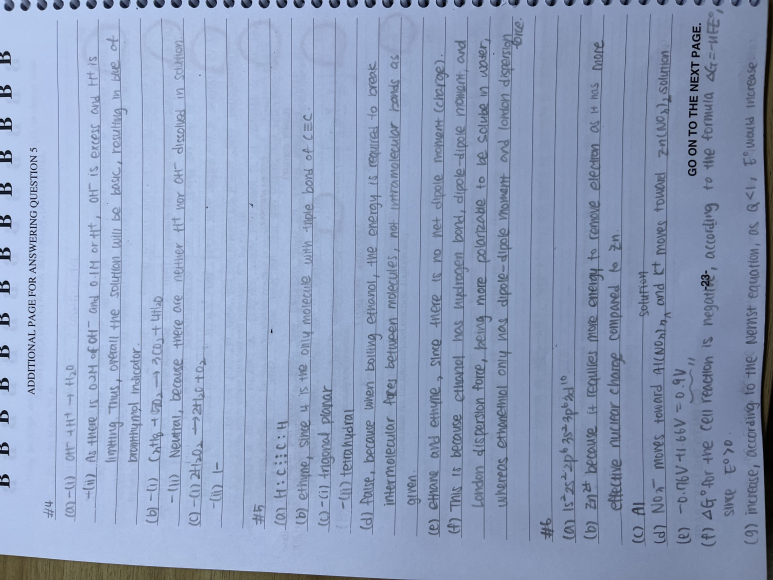 B B B B B B B B B B B B B B
ADDITIONAL PAGE FOR ANSWERING QUESTION 5
#4
(a)-(i) OH⁻ + H⁺ → H₂O
-(ii) As there is 0.2M of OH⁻ and 0.1M or H⁺, OH⁻ is excess and H⁺ is
limiting. Thus, overall the solution will be basic, resulting in blue of
bromthymol indicator.
(b)-(i) C₃H₈ + 5O₂ → 3CO₂ + 4H₂O
-(ii) Neutral, because there are neither H⁺ nor OH⁻ dissolved in solution.
(c)-(i) 2H₂O₂ → 2H₂O + O₂
-(ii) 1-
#5
(a) H:C⋮⋮C:H
(b) ethyne, since it is the only molecule with triple bond of C≡C.
(c)-(i) trigonal planar
-(ii) tetrahydral
(d) false, because when boiling ethanol, the energy is required to break
intermolecular forces between molecules, not intramolecular bonds as
given.
(e) ethane and ethyne, since there is no net dipole moment (charge).
(f) This is because ethanol has hydrogen bond, dipole-dipole moment, and
London dispersion force, being more polarizable to be soluble in water,
whereas ethanethiol only has dipole-dipole moment and london dispersion
force.
#6
(a) 1s² 2s² 2p⁶ 3s² 3p⁶ 3d¹⁰
(b) Zn²⁺ because it requires more energy to remove electron as it has more
effective nuclear charge compared to Zn
(c) Al
(d) NO₃⁻ moves toward Al(NO₃)₃ solution and K⁺ moves toward Zn(NO₃)₂ solution.
(e) -0.76V + 1.66V = 0.9V
GO ON TO THE NEXT PAGE.
-23-
(f) ΔG° for the cell reaction is negative, according to the formula ΔG=-nFE°,
since E°>0.
(g) increase, according to the Nernst equation, as Q<1, E° would increase